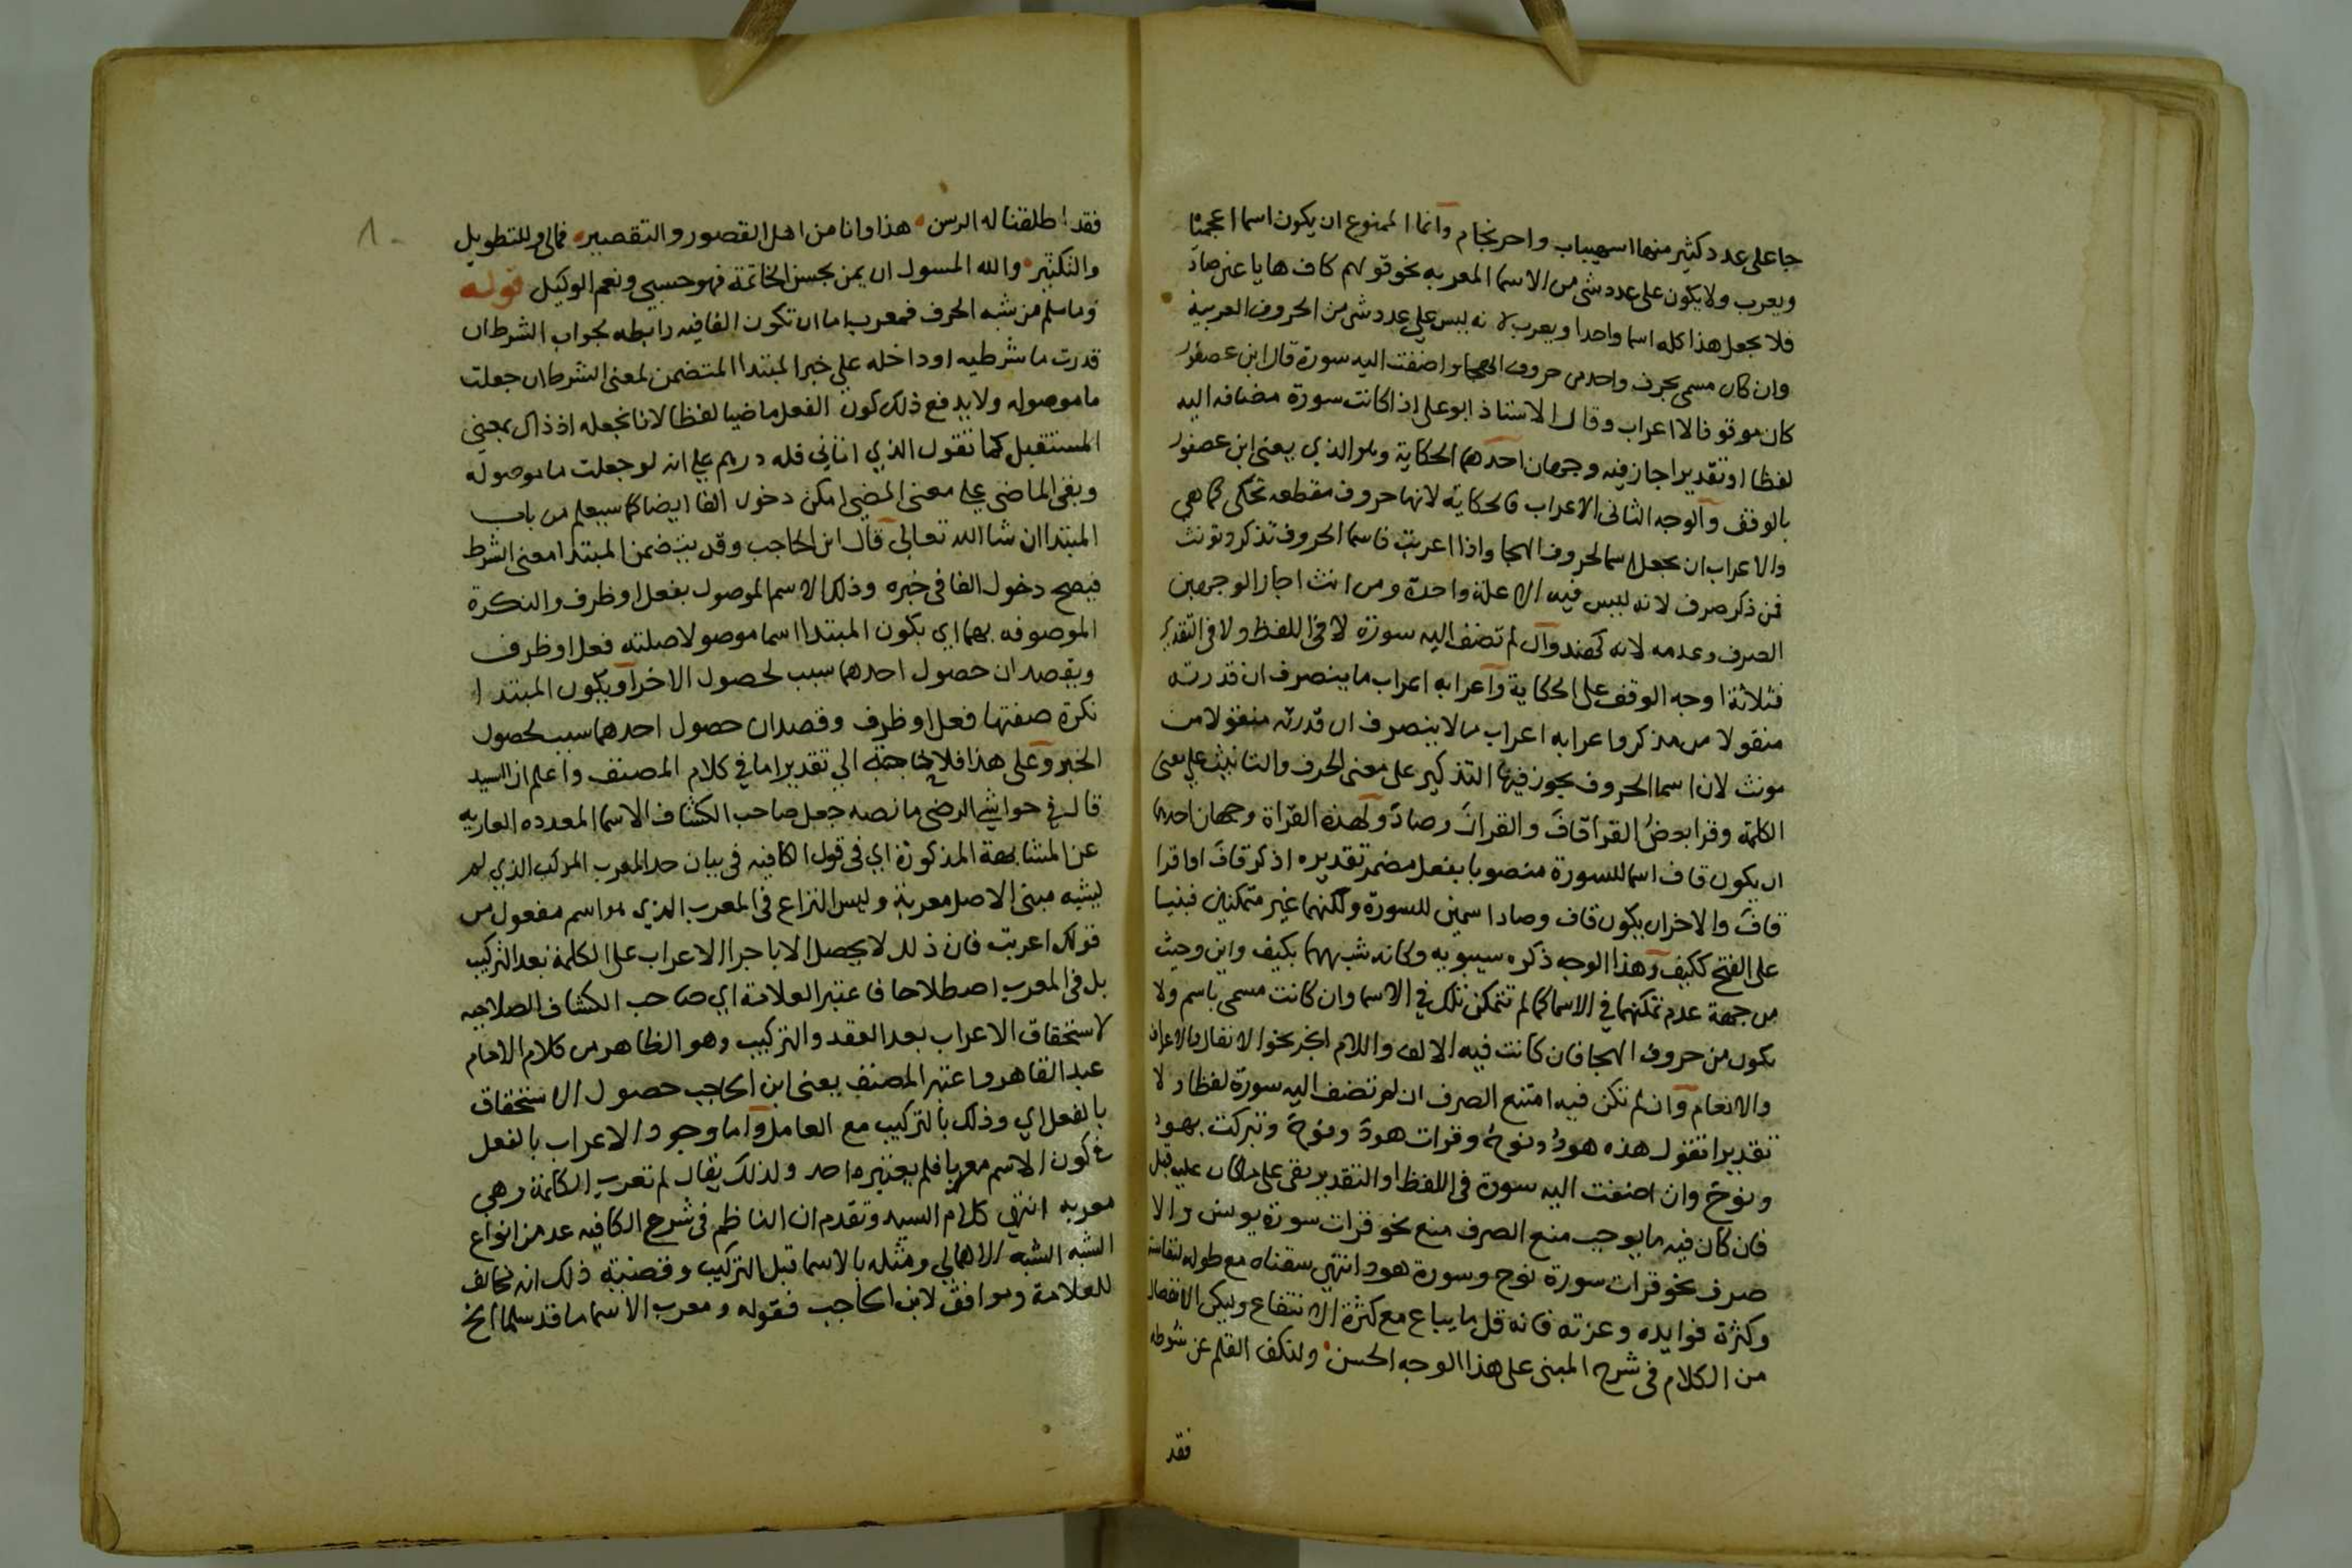 جا على عدد كثير منها اسهيباب واحرنجام وانما الممنوع ان يكون اسما اعجميا
ويعرب ولا يكون على عدد شى من الاسما المعربه نحو قولهم كاف ها يا عين صاد
فلا يجعل هذا كله اسما واحدا ويعرب لانه ليس على عدد شى من الحروف العربية
وان كان مسمى بحرف واحد من حروف الهجا واضفت اليه سورة قال ابن عصفور
كان موقوفا لا اعراب وقال الاستاذ ابو على اذا كانت سورة مضافه اليه
لفظا او تقديرا جاز فيه وجهان احدهما الحكاية وهو الذي يعنى ابن عصفور
بالوقف والوجه الثانى الاعراب فالحكاية لانها حروف مقطعه تحكى كما هى
والاعراب ان يجعل اسما لحروف الهجا واذا اعربت فاسما الحروف تذكر وتونث
فمن ذكر صرف لانه ليس فيه الا علة واحدة ومن انث اجاز الوجهين
الصرف وعدمه لانه كهند وان لم تضف اليه سورة لا فى اللفظ ولا فى التقدير
فثلاثة اوجه الوقف على الحكاية واعرابه اعراب ما ينصرف ان قدرته
منقولا من مذكر واعرابه اعراب ما لا ينصرف ان قدرته منقولا من
مونث لان اسما الحروف يجوز فيها التذكير على معنى الحرف والتانيث على معنى
الكلمة وقرا بعض القرا قاف والقران وصاد ولهذه القراة وجهان احدهما
ان يكون قاف اسما للسورة منصوبا بفعل مضمر تقديره اذكر قاف او اقرا
قاف والاخر ان يكون قاف وصاد اسمين للسورة ولكنهما غير متمكنين فبنيا
على الفتح ككيف وهذا الوجه ذكره سيبويه وكانه شبههما بكيف واين وحيث
من جهة عدم تمكنهما فى الاسما كما لم تتمكن تلك فى الاسما وان كانت مسمى باسم ولا
يكون من حروف الهجا فان كانت فيه الالف واللام انجر نحو الانفال والاعراف
والانعام وان لم تكن فيه امتنع الصرف ان لم تضف اليه سورة لفظا ولا
تقديرا تقول هذه هود ونوح وقرات هود ونوح وتبركت بهود
ونوح وان اضفت اليه سورة فى اللفظ او التقدير بقى على ما كان عليه قبل
فان كان فيه ما يوجب منع الصرف منع نحو قرات سورة يونس والا
صرف نحو قرات سورة نوح وسورة هود انتهى سقناه مع طوله لنفاسته
وكثرة فوايده وعزته فانه قل ما يباع مع كثرة الانتفاع وليكن الانفصال
من الكلام فى شرح المبنى على هذا الوجه الحسن ولنكف القلم عن شوطه
فقد
فقد اطلقنا له الرسن هذا وانا من اهل القصور والتقصير فمالى وللتطويل
والتكثير والله المسول ان يمن بحسن الخاتمة فهو حسبى ونعم الوكيل قوله
وما سلم من شبه الحرف فمعرب اما ان تكون الفا فيه رابطه لجواب الشرط ان
قدرت ما شرطيه او داخله على خبر المبتدا المتضمن لمعنى الشرط ان جعلت
ما موصوله ولا يدفع ذلك كون الفعل ماضيا لفظا لانا نجعله اذ ذاك بمعنى
المستقبل كما تقول الذي اتانى فله درهم على انه لو جعلت ما موصوله
وبقى الماضى على معنى المضى امكن دخول الفا ايضا كما سيعلم من باب
المبتدا ان شا الله تعالى قال ابن الحاجب وقد يتضمن المبتدا معنى الشرط
فيصح دخول الفا فى خبره وذلك الاسم الموصول بفعل او ظرف والنكرة
الموصوفه بهما اي يكون المبتدا اسما موصولا صلته فعل او ظرف
ويقصد ان حصول احدهما سبب لحصول الاخر او يكون المبتدا
نكرة صفتها فعل او ظرف وقصد ان حصول احدهما سبب لحصول
الخبر وعلى هذا فلا حاجة الي تقدير اما فى كلام المصنف واعلم ان السيد
قال فى حواشى الرضى ما نصه جعل صاحب الكشاف الاسما المعدده العاريه
عن المشابهة المذكورة اي فى قول الكافيه فى بيان حد المعرب المركب الذي لم
يشبه مبنى الاصل معربة وليس النزاع فى المعرب الذي هو اسم مفعول من
قولك اعربت فان ذلك لا يحصل الا باجرا الاعراب على الكلمة بعد التركيب
بل فى المعرب اصطلاحا فاعتبر العلامة اي صاحب الكشاف الصلاحيه
لاستحقاق الاعراب بعد العقد والتركيب وهو الظاهر من كلام الامام
عبد القاهر واعتبر المصنف يعنى ابن الحاجب حصول الاستحقاق
بالفعل اي وذلك بالتركيب مع العامل واما وجود الاعراب بالفعل
فى كون الاسم معربا فلم يعتبره احد ولذلك يقال لم تعرب الكلمة وهى
معربه انتهى كلام السيد وتقدم ان الناظم فى شرح الكافيه عد من انواع
الشبه الشبه الاهمالي ومثله بالاسما قبل التركيب وقضية ذلك انه مخالف
للعلامة وموافق لابن الحاجب فقوله ومعرب الاسما ما قد سلما الخ